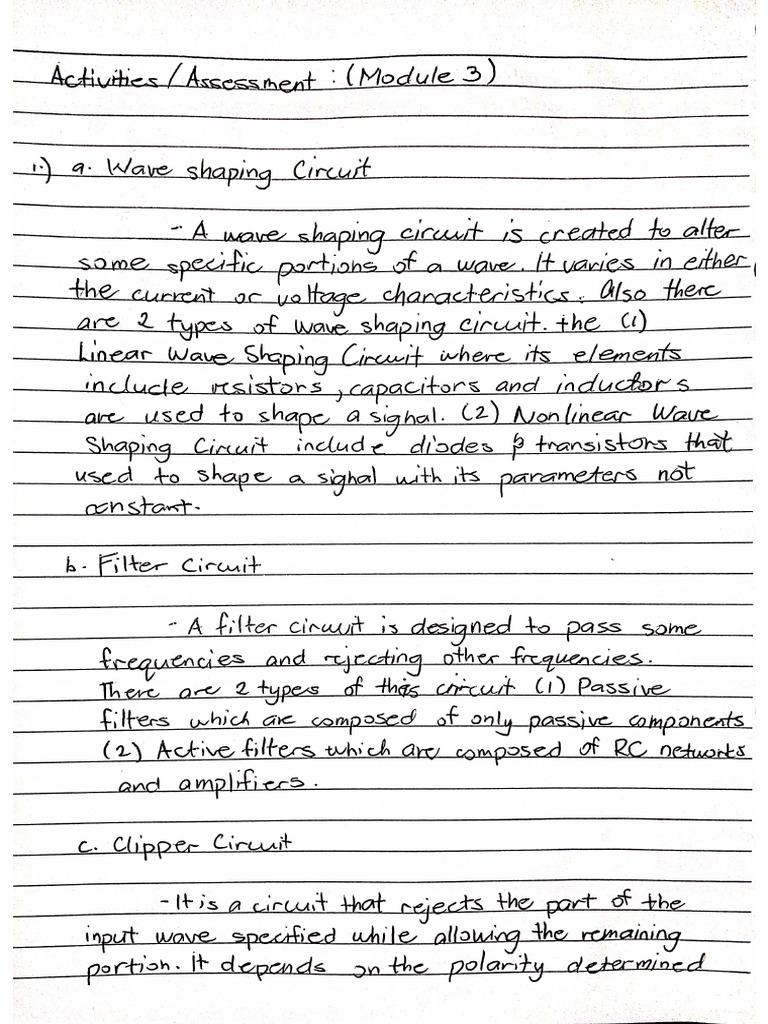 Activities/Assessment : (Module 3)
1.) a. Wave shaping Circuit
- A wave shaping circuit is created to alter
some specific portions of a wave. It varies in either
the current or voltage characteristics. Also there
are 2 types of wave shaping circuit. the (1)
Linear Wave Shaping Circuit where its elements
include resistors, capacitors and inductors
are used to shape a signal. (2) Nonlinear Wave
Shaping Circuit include diodes & transistors that
used to shape a signal with its parameters not
constant.
b. Filter Circuit
- A filter circuit is designed to pass some
frequencies and rejecting other frequencies.
There are 2 types of this circuit (1) Passive
filters which are composed of only passive components
(2) Active filters which are composed of RC networks
and amplifiers.
c. Clipper Circuit
- It is a circuit that rejects the part of the
input wave specified while allowing the remaining
portion. It depends on the polarity determined